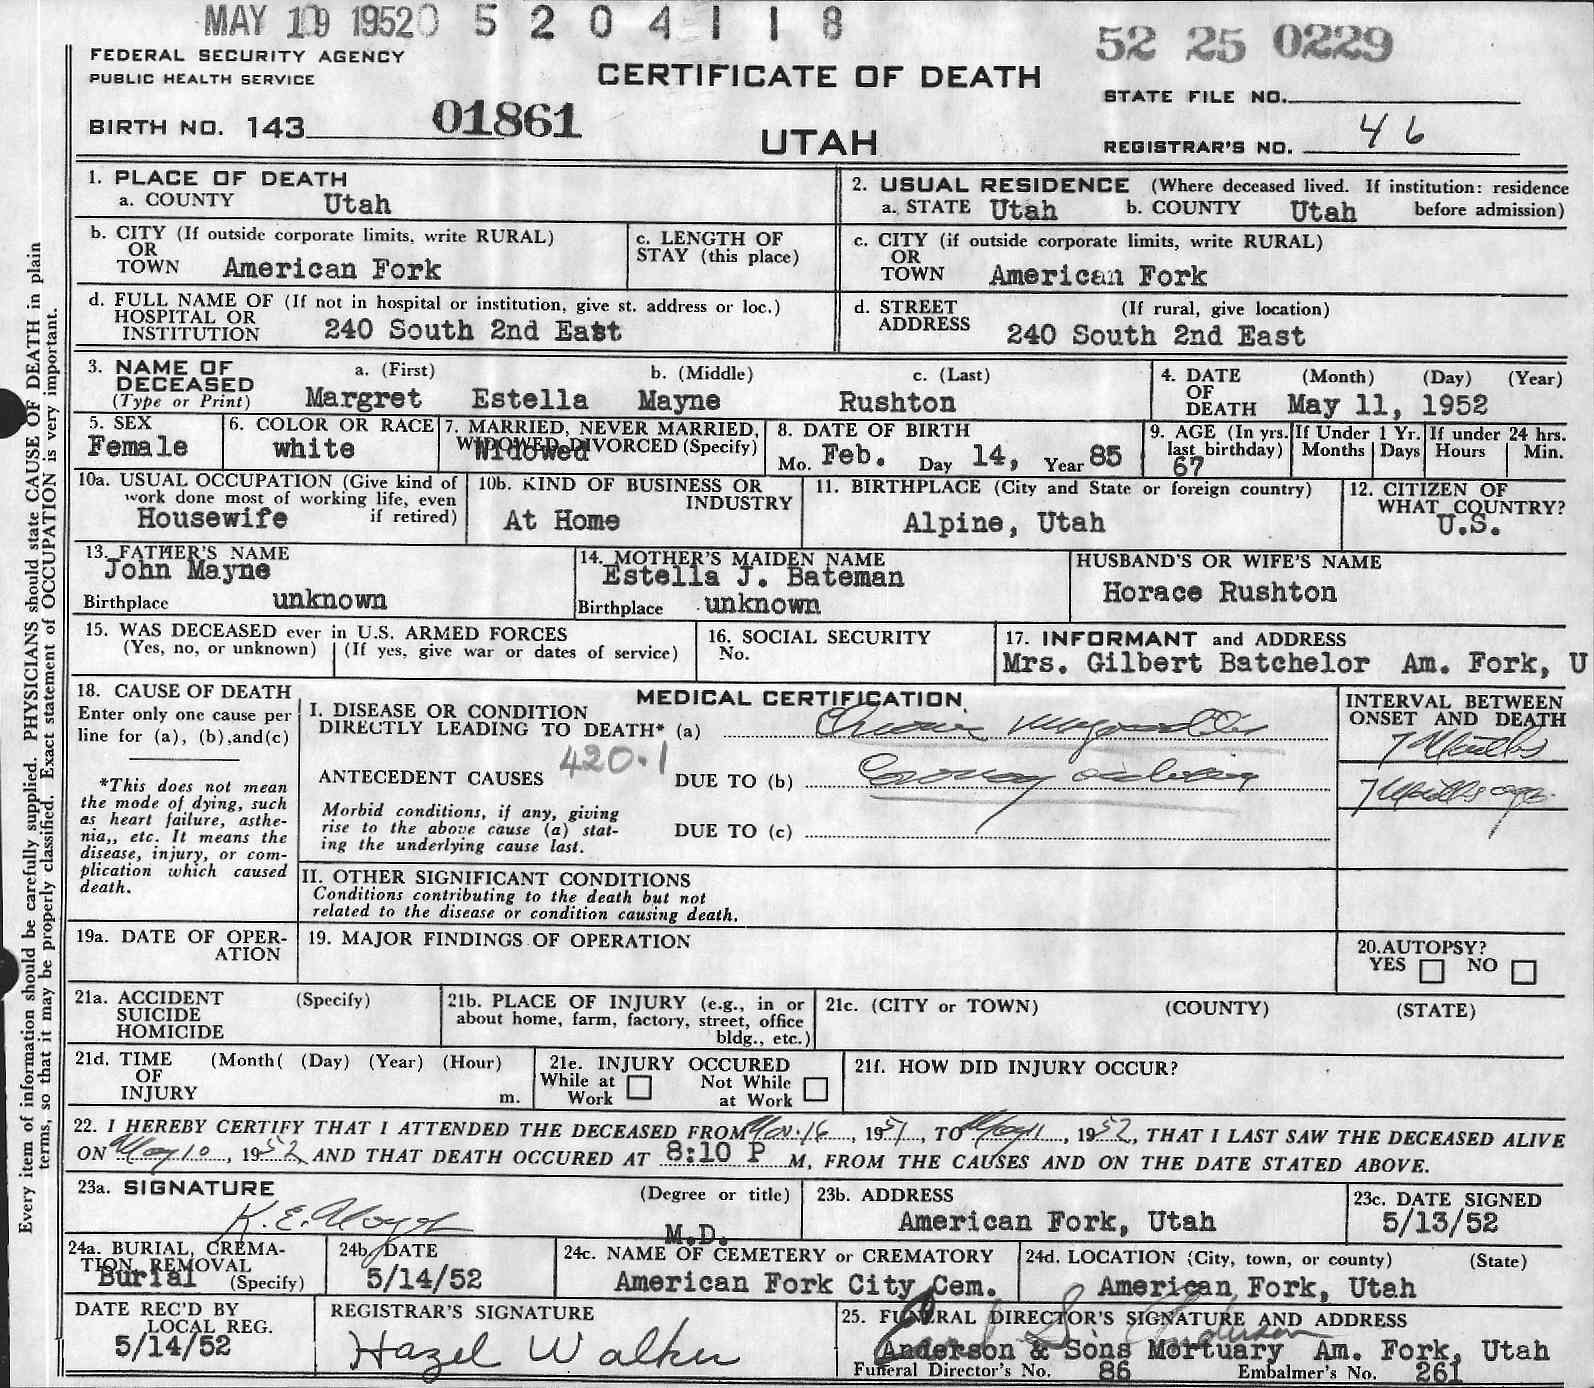 MAY 19 1952 0 5 2 0 4 1 1 8
52 25 0229
FEDERAL SECURITY AGENCY
PUBLIC HEALTH SERVICE
CERTIFICATE OF DEATH
STATE FILE NO.
BIRTH NO. 143 01861
UTAH
REGISTRAR'S NO. 46
Every item of information should be carefully supplied. PHYSICIANS should state CAUSE OF DEATH in plain
terms, so that it may be properly classified. Exact statement of OCCUPATION is very important.
1. PLACE OF DEATH
a. COUNTY Utah
2. USUAL RESIDENCE (Where deceased lived. If institution: residence
a. STATE Utah b. COUNTY Utah before admission)
b. CITY (If outside corporate limits, write RURAL)
OR
TOWN American Fork
c. LENGTH OF
STAY (this place)
c. CITY (if outside corporate limits, write RURAL)
OR
TOWN American Fork
d. FULL NAME OF (If not in hospital or institution, give st. address or loc.)
HOSPITAL OR
INSTITUTION 240 South 2nd East
d. STREET (If rural, give location)
ADDRESS 240 South 2nd East
3. NAME OF a. (First) b. (Middle) c. (Last)
DECEASED
(Type or Print) Margret Estella Mayne Rushton
4. DATE (Month) (Day) (Year)
OF
DEATH May 11, 1952
5. SEX
Female
6. COLOR OR RACE
white
7. MARRIED, NEVER MARRIED,
WIDOWED DIVORCED (Specify)
Widowed
8. DATE OF BIRTH
Mo. Feb. Day 14, Year 85
9. AGE (In yrs. If Under 1 Yr. If under 24 hrs.
last birthday) Months Days Hours Min.
67
10a. USUAL OCCUPATION (Give kind of
work done most of working life, even
Housewife if retired)
10b. KIND OF BUSINESS OR
INDUSTRY
At Home
11. BIRTHPLACE (City and State or foreign country)
Alpine, Utah
12. CITIZEN OF
WHAT COUNTRY?
U.S.
13. FATHER'S NAME
John Mayne
Birthplace unknown
14. MOTHER'S MAIDEN NAME
Estella J. Bateman
Birthplace unknown
HUSBAND'S OR WIFE'S NAME
Horace Rushton
15. WAS DECEASED ever in U.S. ARMED FORCES
(Yes, no, or unknown) (If yes, give war or dates of service)
16. SOCIAL SECURITY
No.
17. INFORMANT and ADDRESS
Mrs. Gilbert Batchelor Am. Fork, U
18. CAUSE OF DEATH
Enter only one cause per
line for (a), (b),and(c)
*This does not mean
the mode of dying, such
as heart failure, asthe-
nia,, etc. It means the
disease, injury, or com-
plication which caused
death.
MEDICAL CERTIFICATION
I. DISEASE OR CONDITION
DIRECTLY LEADING TO DEATH* (a) Chronic Myocarditis
420.1
ANTECEDENT CAUSES DUE TO (b) Coronary
Morbid conditions, if any, giving
rise to the above cause (a) stat-
ing the underlying cause last.
DUE TO (c)
INTERVAL BETWEEN
ONSET AND DEATH
7 Months
7 Months ago
II. OTHER SIGNIFICANT CONDITIONS
Conditions contributing to the death but not
related to the disease or condition causing death.
19a. DATE OF OPER-
ATION
19. MAJOR FINDINGS OF OPERATION
20.AUTOPSY?
YES NO
21a. ACCIDENT (Specify)
SUICIDE
HOMICIDE
21b. PLACE OF INJURY (e.g., in or
about home, farm, factory, street, office
bldg., etc.)
21c. (CITY or TOWN) (COUNTY) (STATE)
21d. TIME (Month( (Day) (Year) (Hour)
OF
INJURY m.
21e. INJURY OCCURED
While at Not While
Work at Work
21f. HOW DID INJURY OCCUR?
22. I HEREBY CERTIFY THAT I ATTENDED THE DECEASED FROM Nov. 16, 1951, TO May 11, 1952, THAT I LAST SAW THE DECEASED ALIVE
ON May 10, 1952 AND THAT DEATH OCCURED AT 8:10 P M, FROM THE CAUSES AND ON THE DATE STATED ABOVE.
23a. SIGNATURE (Degree or title)
K. E. M.D.
23b. ADDRESS
American Fork, Utah
23c. DATE SIGNED
5/13/52
24a. BURIAL, CREMA-
TION, REMOVAL
Burial (Specify)
24b. DATE
5/14/52
24c. NAME OF CEMETERY or CREMATORY
American Fork City Cem.
24d. LOCATION (City, town, or county) (State)
American Fork, Utah
DATE REC'D BY
LOCAL REG.
5/14/52
REGISTRAR'S SIGNATURE
Hazel Walker
25. FUNERAL DIRECTOR'S SIGNATURE AND ADDRESS
Anderson
Anderson & Sons Mortuary Am. Fork, Utah
Funeral Director's No. 86 Embalmer's No. 261